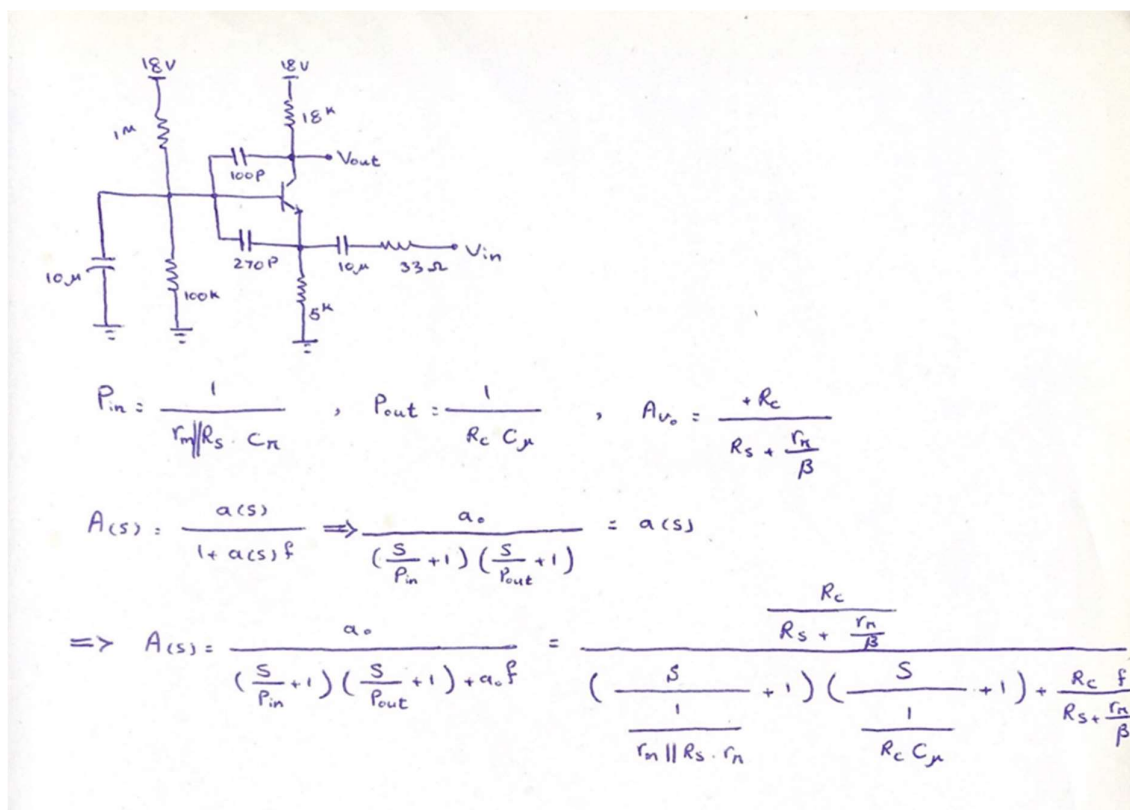 18V 18V
1M 18K
100P Vout
270P 10μ 33Ω Vin
10μ 100K 5K
Pin = 1 / (rm||Rs . Cπ) , Pout = 1 / (Rc Cμ) , Av₀ = +Rc / (Rs + rπ/β)
A(s) = a(s) / (1 + a(s) f) ⟹ a₀ / ((S/Pin + 1) (S/Pout + 1)) = a(s)
=> A(s) = a₀ / ((S/Pin + 1) (S/Pout + 1) + a₀ f) = (Rc / (Rs + rπ/β)) / ((S / (1 / (rm || Rs . rπ)) + 1) (S / (1 / (Rc Cμ)) + 1) + Rc f / (Rs + rπ/β))